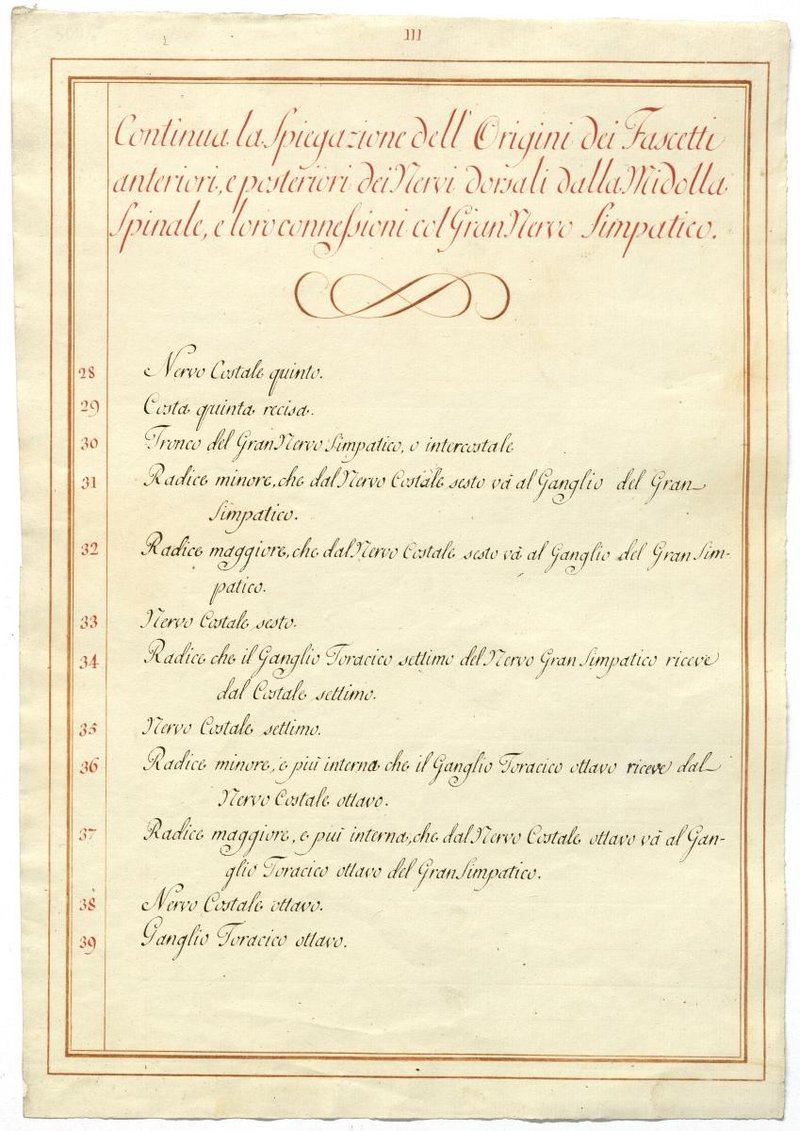 III
Continua la Spiegazione dell' Origini dei Fascetti
anteriori, e posteriori dei Nervi dorsali dalla Midolla
Spinale, e loro connessioni col Gran Nervo Simpatico.
28 Nervo Costale quinto.
29 Costa quinta recisa.
30 Tronco del Gran Nervo Simpatico, o intercostale
31 Radice minore, che dal Nervo Costale sesto và al Ganglio del Gran
Simpatico.
32 Radice maggiore, che dal Nervo Costale sesto và al Ganglio del Gran Sim-
patico.
33 Nervo Costale sesto.
34 Radice che il Ganglio Toracico settimo del Nervo Gran Simpatico riceve
dal Costale settimo.
35 Nervo Costale settimo.
36 Radice minore, e più interna che il Ganglio Toracico ottavo riceve dal
Nervo Costale ottavo.
37 Radice maggiore, e più interna, che dal Nervo Costale ottavo và al Gan-
glio Toracico ottavo del Gran Simpatico.
38 Nervo Costale ottavo.
39 Ganglio Toracico ottavo.